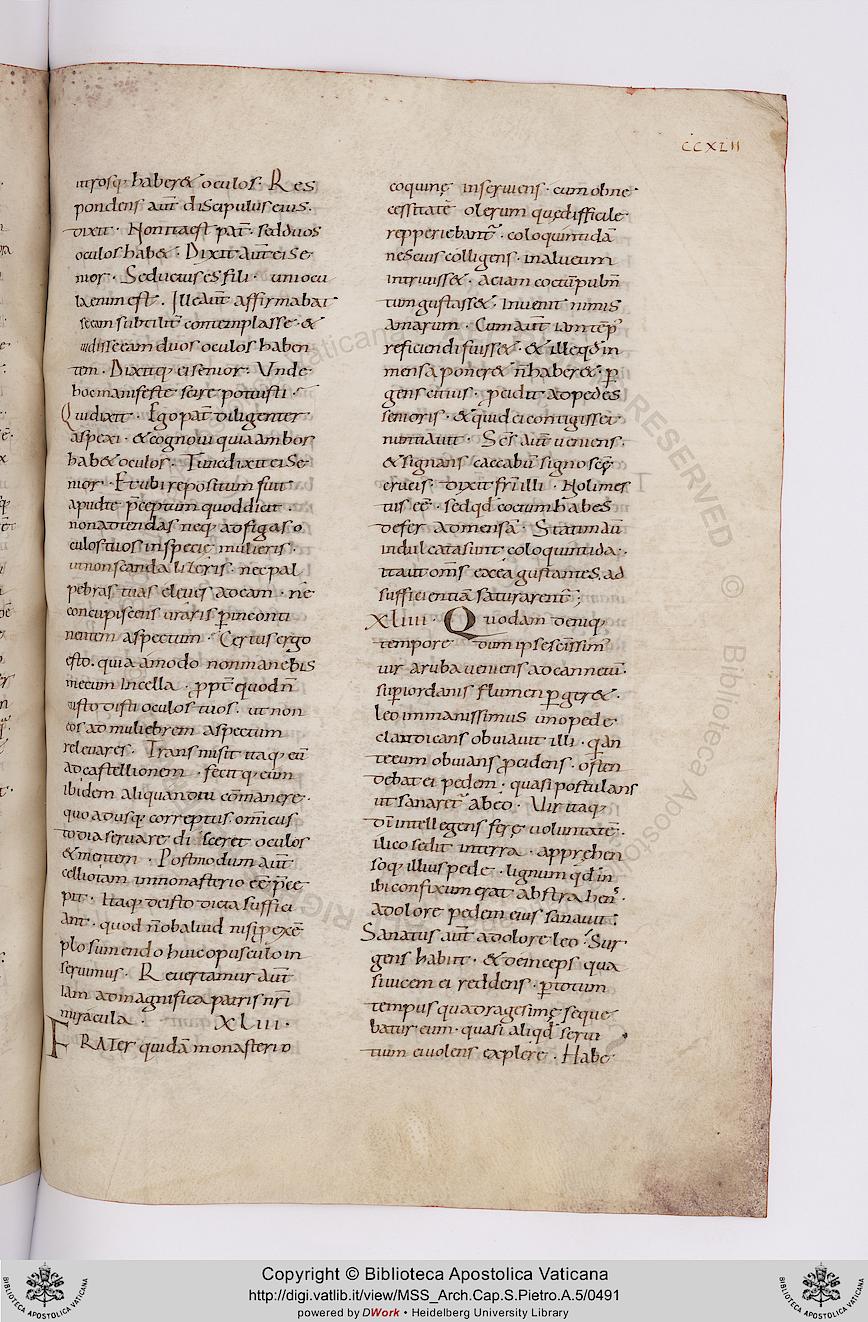 CCXLII
utrosq; haber& oculos· Res
pondens aut̄ discipulus eius·
dixit· Non ita est pat̄· sed duos
oculos hab&· Dixit aut̄ ei se
nior· Seductus es fili· uniocu
la enim est· Ille aut̄ affirmabat
se eam subtilit̄ contemplasse· &
uidisse eam duos oculos haben
tem· Dixitq; ei senior· Unde
hoc manifeste scire potuisti·
Qui dixit· Ego pat̄ diligenter
aspexi· & cognoui quia ambos
hab& oculos· Tunc dixit ei Se
nior· Et ubi repositum fuit
apud te p̄ceptum quod dicit·
non adtendas neq; adfigas o
culos tuos in speciẹ mulieris·
ut non scanda liẓeris· nec pal
pebras tuas eleues ad eam· ne
concupiscens uraris p̱ inconti
nentem aspectum· Certus ergo
esto· quia amodo non manebis
mecum in cella· p̱pt̄ quod n̄
custodisti oculos tuos· ut non
eos ad muliebrem aspectum
releuares· Transmisit itaq; eū
ad castellionem· fecitq; eum
ibidem aliquandiu cōmanere·
quo adusq; correptus om̄i cus
todia seruare disceret oculos
& mentem· Postmodum aut̄
celliotam in monasterio eē p̄ce
pit· Itaq; de isto dicta suffici
ant· quod n̄ ob aliud nisi p̱ exē
plo sumendo huic opusculo in
seruimus· Reuertamur aut̄
iam ad magnifica patris nr̄i
miracula· XLIII·
FRATER quidā monasterio
coquinę inseruiens· cum ob ne
cessitatē olerum quę difficile
repperiebant̄· coloquintidā
nescius colligens· in alueum
intriuiss&· ac iam coctū pulm̄
tum gustass&· inuenit nimis
amarum· Cum aut̄ iam tēp'
reficiendi fuiss&· & ille qđ in
mensa poner& n̄ haber&· p̱
gens citius· p̱cidit ad pedes
senioris· & quid ei contigisset
nuntiauit· Sc̄s aut̄ ueniens·
& signans caccabū signo scę̄
crucis· dixit fr̄i illi· Noli mes
tus eē· sed qđ coctum habes
defer ad mensā· Statim aū
indulcata sunt coloquintida·
ita ut om̄s ex ea gustantes· ad
sufficientiā saturarent̄;
XLIIII· Quodam deniq;
tempore dum ipse sc̄issim'
uir a ruba ueniens ad cannetū·
sup̱ iordanis flumen p̱ger&·
leo immanissimus uno pede
claudicans obuiauit illi· q̄an
tecum obuians p̱cidens· osten
debat ei pedem· quasi postulans
ut sanaret̄ ab eo· Uir itaq;
dī intellegens ferę uoluntatē·
ilico sedit in terra· apprẹhen
soq; illius pede· lignum qđ in
ibi confixum erat abstrahens·
a dolore pedem eius sanauit·
Sanatus aut̄ a dolore leo· Sur
gens habiit· & deinceps qua
si uicem ei reddens· p̱ totum
tempus quadragesimę seque
batur eum· quasi aliqđ serui
tium ei uolens explere· Habe
RESERVED © Biblioteca Aposto
Copyright © Biblioteca Apostolica Vaticana
http://digi.vatlib.it/view/MSS_Arch.Cap.S.Pietro.A.5/0491
powered by DWork • Heidelberg University Library
BIBLIOTECA APOSTOLICA VATICANA
BIBLIOTECA APOSTOLICA VATICANA